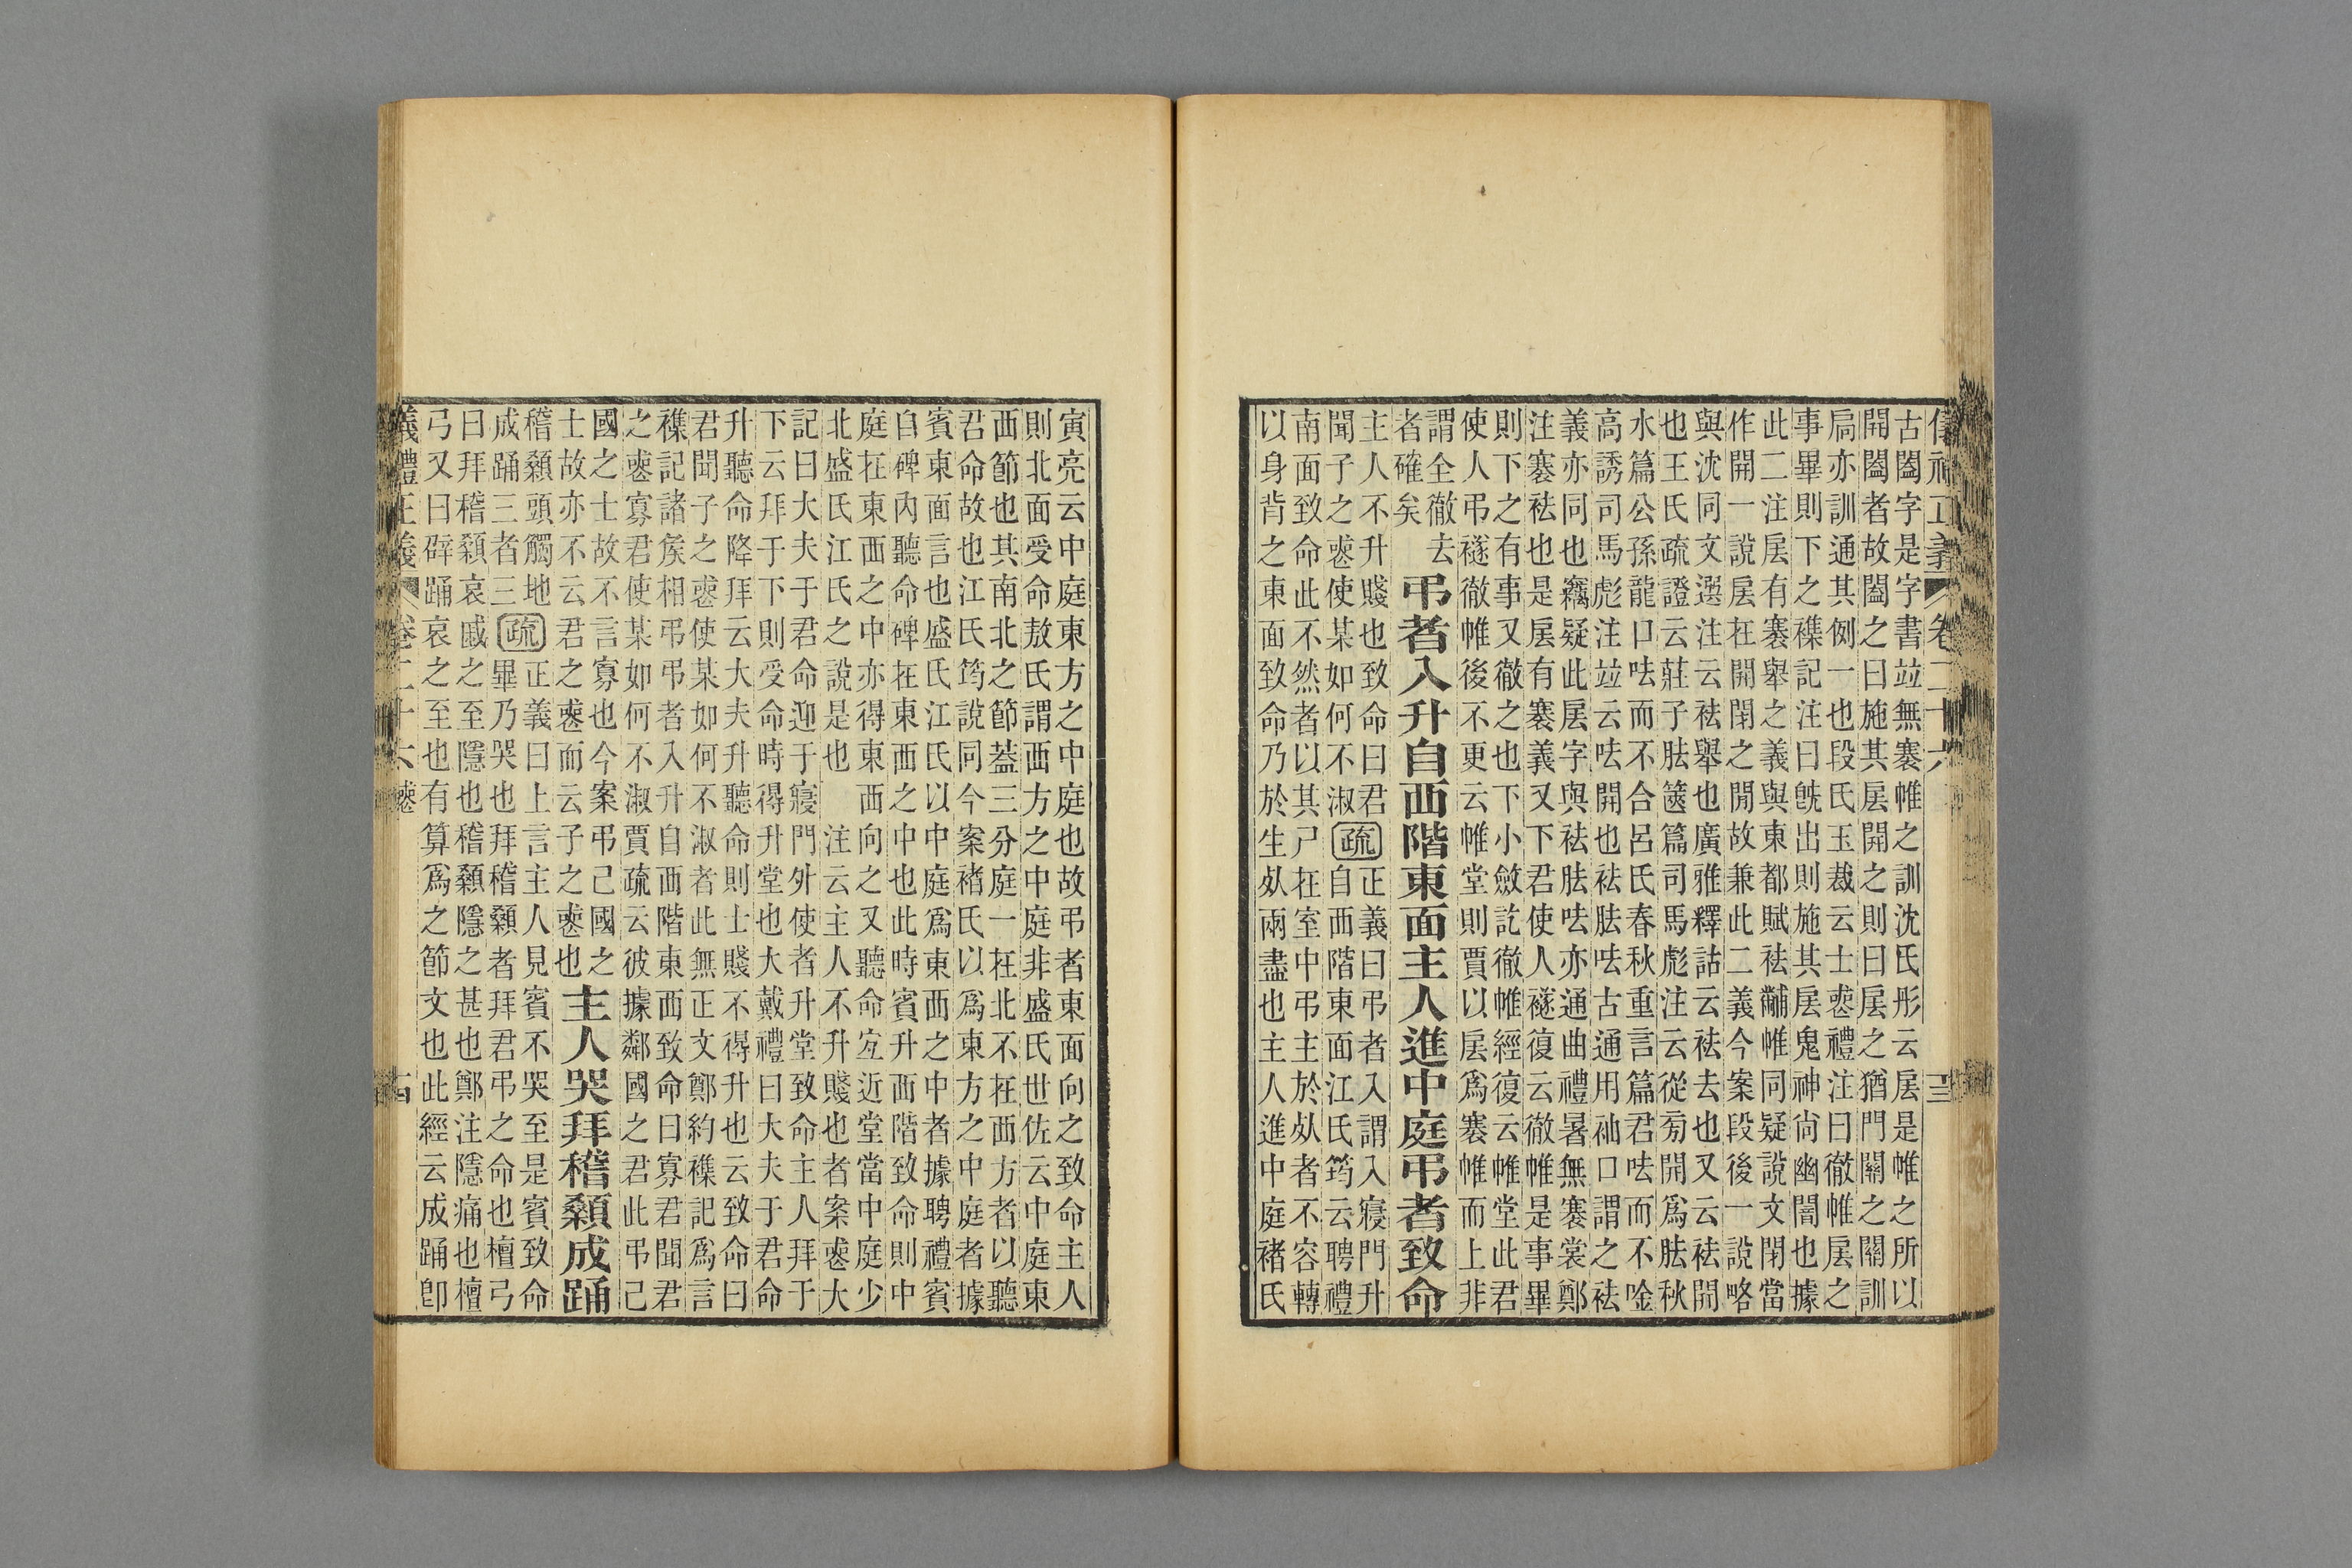 儀禮正義 卷二十六 十三
古闔字是字書竝無褰帷之訓沈氏彤云㞐是帷之所以
開闔者故闔之曰施其㞐開之則曰㞐之猶門關之關訓
扃亦訓通其例一也段氏玉裁云士喪禮注曰徹帷㞐之
事畢則下之襍記注曰旣出則施其㞐鬼神尙幽闇也據
此二注㞐有褰舉之義與東都賦祛黼帷同疑說文閉當
作開一說㞐在開閉之閒故兼此二義今案段後一說略
與沈同文選注云祛舉也廣雅釋詁云祛去也又云祛開
也王氏疏證云莊子胠篋篇司馬彪注云從㫄開爲胠秋
水篇公孫龍口呿而不合呂氏春秋重言篇君呿而不唫
高誘司馬彪注竝云呿開也祛胠呿古通用袖口謂之袪
義亦同也竊疑此㞐字與祛胠呿亦通曲禮暑無褰裳鄭
注褰袪也是㞐有褰義又下君使人襚復云徹帷是事畢
則下之有事又徹之也下小斂訖徹帷經復云帷堂此君
使人弔襚徹帷後不更云帷堂則賈以㞐爲褰帷而上非
謂全徹去
者確矣
弔者入升自西階東面主人進中庭弔者致命
主人不升賤也致命曰君
聞子之喪使某如何不淑
疏
正義曰弔者入謂入寢門升
自西階東面江氏筠云聘禮
南面致命此不然者以其尸在室中弔主於死者不容轉
以身背之東面致命乃於生死兩盡也主人進中庭褚氏
寅亮云中庭東方之中庭也故弔者東面向之致命主人
則北面受命敖氏謂西方之中庭非盛氏世佐云中庭東
西節也其南北之節蓋三分庭一在北不在西方者以聽
君命故也江氏筠說同今案褚氏以爲東方之中庭者據
賓東面言也盛氏江氏以中庭爲東西之中者據聘禮賓
自碑內聽命碑在東西之中也此時賓升西階致命則中
庭在東西之中亦得東西向之又聽命宐近堂當中庭少
北盛氏江氏之說是也 注云主人不升賤也者案喪大
記曰大夫于君命迎于寢門外使者升堂致命主人拜于
下云拜于下則受命時得升堂也大戴禮曰大夫于君命
升聽命降拜云大夫升聽命則士賤不得升也云致命曰
君聞子之喪使某如何不淑者此無正文鄭約襍記爲言
襍記諸矦相弔弔者入升自西階東面致命曰寡君聞君
之喪寡君使某如何不淑賈疏云彼據鄰國之君此弔己
國之士故不言寡也今案弔己國之
士故亦不云君之喪而云子之喪也
主人哭拜稽顙成踊
稽顙頭觸地
成踊三者三
疏
正義曰上言主人見賓不哭至是賓致命
畢乃哭也拜稽顙者拜君弔之命也檀弓
曰拜稽顙哀戚之至隱也稽顙隱之甚也鄭注隱痛也檀
弓又曰辟踊哀之至也有算爲之節文也此經云成踊卽
儀禮正義 卷二十六 喪 十四